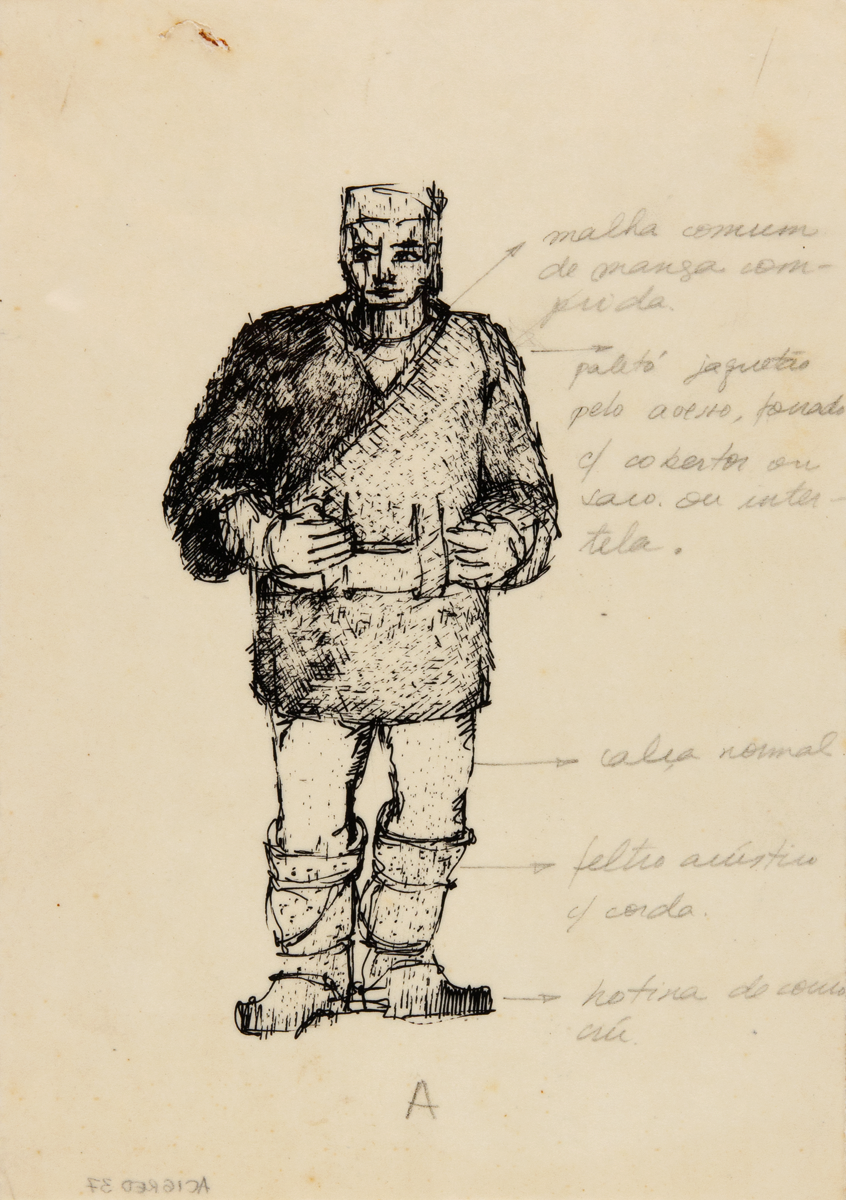 malha comum
de manga com-
prida.
paletó jaquetão
pelo avesso, forrado
c/ cobertor ou
saco. ou inter-
tela.
calça normal
feltro acústico
c/ corda.
botina de couro
crú
A
ACIGRED 37